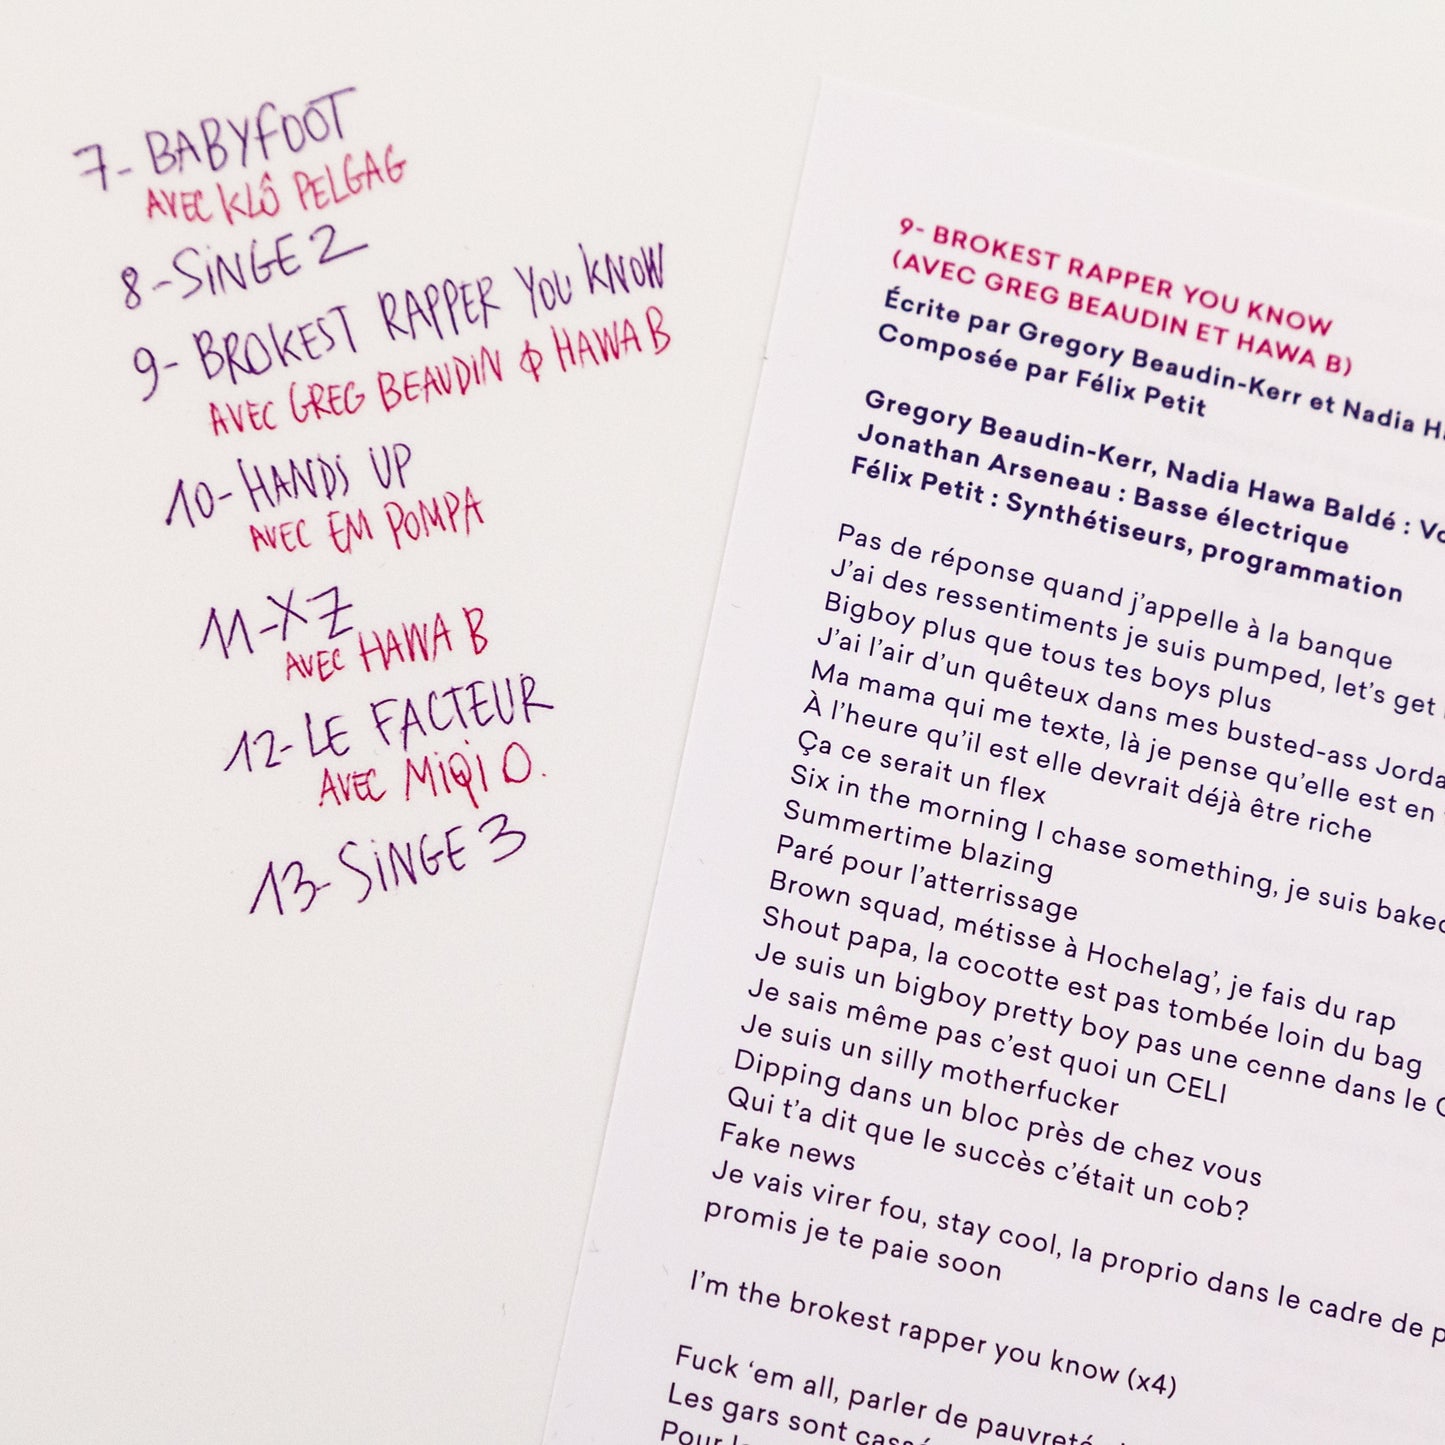 7- BABYFOOT
AVEC KLÔ PELGAG
8- SINGE 2
9- BROKEST RAPPER YOU KNOW
AVEC GREG BEAUDIN & HAWA B
10- HANDS UP
AVEC EM POMPA
11- XZ
AVEC HAWA B
12- LE FACTEUR
AVEC MIQI O.
13- SINGE 3
9- BROKEST RAPPER YOU KNOW
(AVEC GREG BEAUDIN ET HAWA B)
Écrite par Gregory Beaudin-Kerr et Nadia
Composée par Félix Petit
Gregory Beaudin-Kerr, Nadia Hawa Baldé :
Jonathan Arseneau : Basse électrique
Félix Petit : Synthétiseurs, programmation
Pas de réponse quand j'appelle à la banque
J'ai des ressentiments je suis pumped, let's get
Bigboy plus que tous tes boys plus
J'ai l'air d'un quêteux dans mes busted-ass
Ma mama qui me texte, là je pense qu'elle est en
À l'heure qu'il est elle devrait déjà être riche
Ça ce serait un flex
Six in the morning I chase something, je suis baked
Summertime blazing
Paré pour l'atterrissage
Brown squad, métisse à Hochelag', je fais du rap
Shout papa, la cocotte est pas tombée loin du bag
Je suis un bigboy pretty boy pas une cenne dans le
Je sais même pas c'est quoi un CELI
Je suis un silly motherfucker
Dipping dans un bloc près de chez vous
Qui t'a dit que le succès c'était un cob?
Fake news
Je vais virer fou, stay cool, la proprio dans le cadre de
promis je te paie soon
I'm the brokest rapper you know (x4)
Fuck 'em all, parler de pauvreté
Les gars sont
Pour